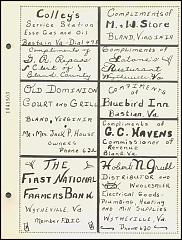 Colley's
Service Station
Esso Gas and Oil
Bastian Va - Dial
Compliments of
M. & H. Store
Bland, Virginia
Compliments of
G. R. Repass
Bland County
Compliments of
Restaurant
Wytheville Va.
Old Dominion
Court and Grill
Bland, Virginia
Mr. & Mrs. Jack P. House
Owners
Phone 622
Compliments of
Bluebird Inn
Bastian, Va.
Compliments of
G. C. Havens
Commissioner of
Revenue
Bland Va.
The
First National
Farmers Bank
Wytheville, Va.
Member F.D.I.C.
Distributor and
Wholesaler
Electrical Goods
Plumbing, Heating
and Mill Supplies
Wytheville, Va.
Phone 620